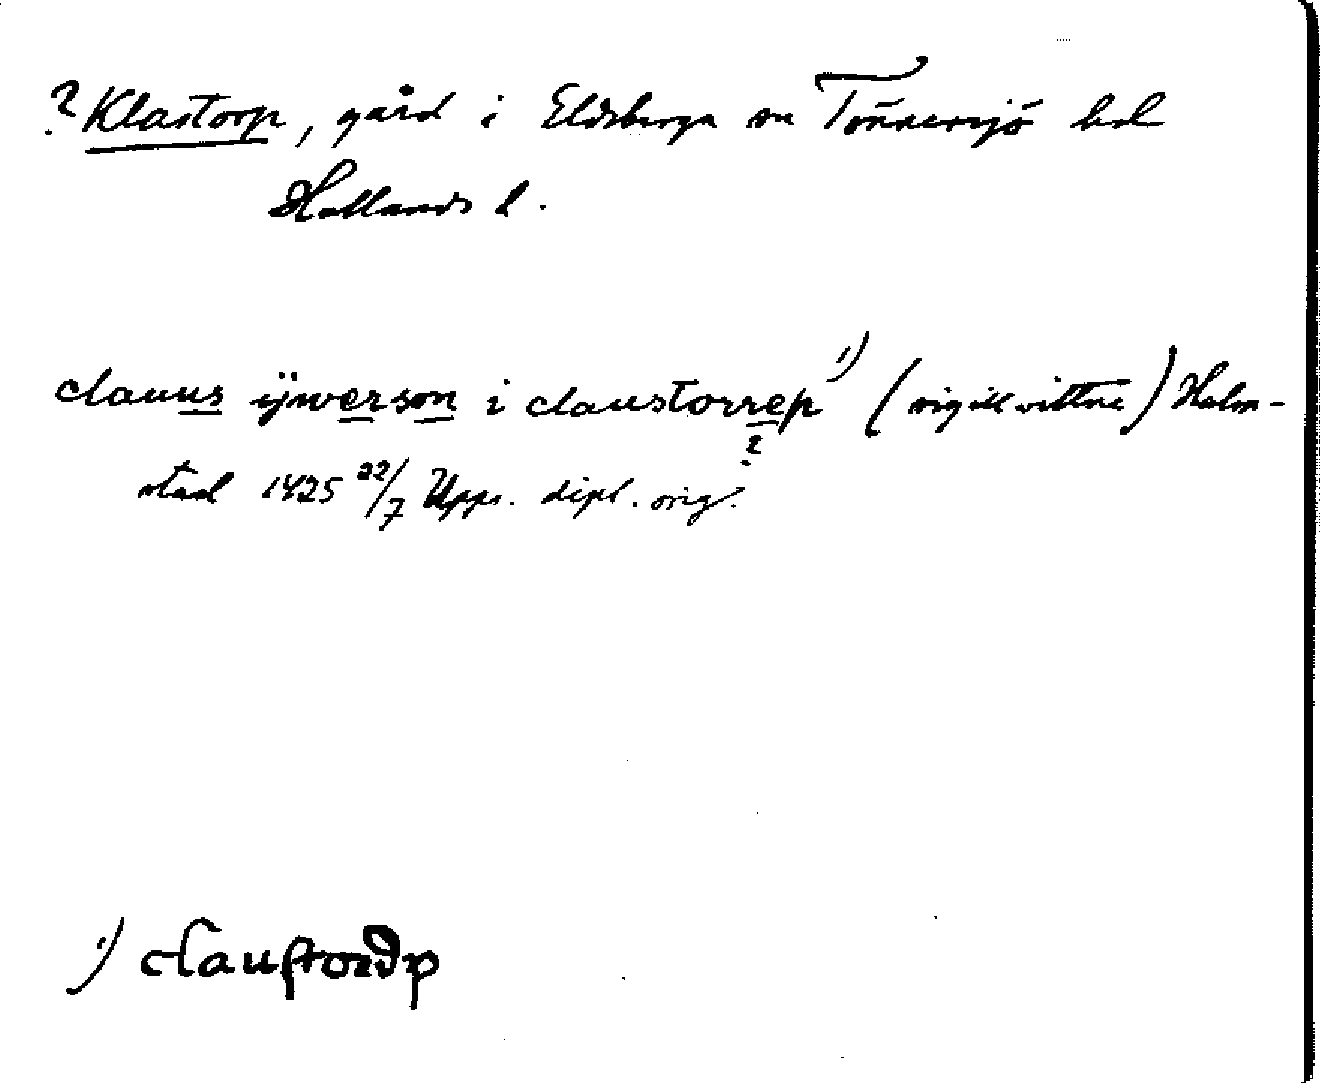 ? Klastorp, gård i Eldsberga sn Tönnersjö hd
Hallands l.
clauus ÿwerson i claustorrep 1) (sigillvittne) Halm-
?
stad 1425 22/7 Upps. dipl. orig.
1) claustorp